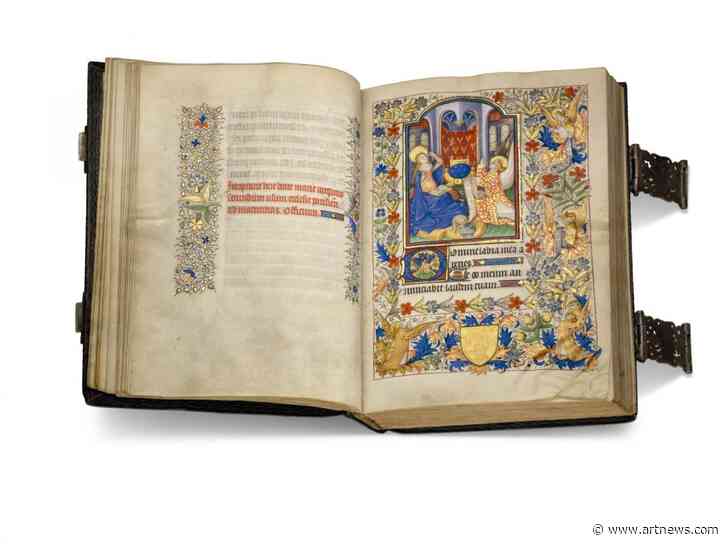 hore marie virginis
secundum usum ecclesie parisien
ad matutinas. Officium.
Domine labia mea a
peries
Et os meum an
nunciabit laudem tuam.
© www.artnews.com